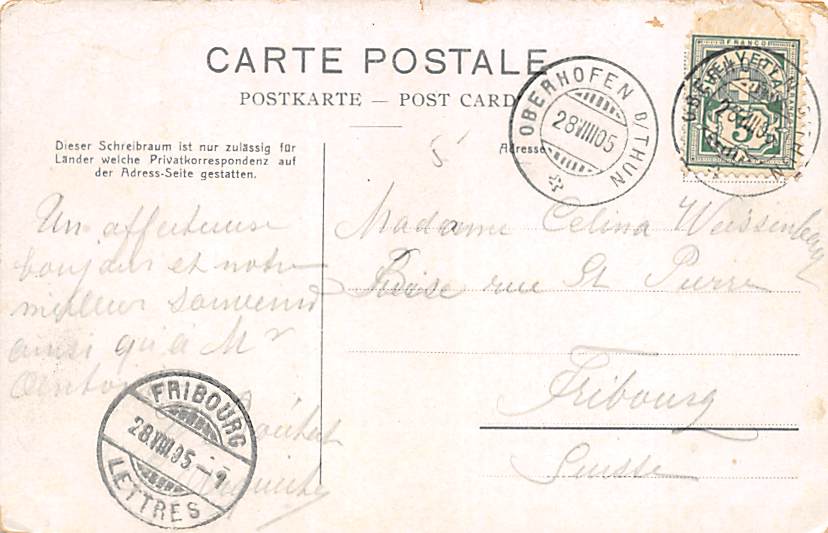 CARTE POSTALE
POSTKARTE — POST CARD
Dieser Schreibraum ist nur zulässig für
Länder welche Privatkorrespondenz auf
der Adress-Seite gestatten.
Adresse
5
OBERHOFEN B/THUN
28 VIII 05
FRANCO
HELVETIA
5
OBERHOFEN B/THUN
28 VIII 05
Un affectueux
bonjour et notre
meilleur souvenir
ainsi qu'à Mr
Madame Celina Weissenbach
rue St Pierre
Fribourg
Suisse
FRIBOURG
28.VIII.05
LETTRES